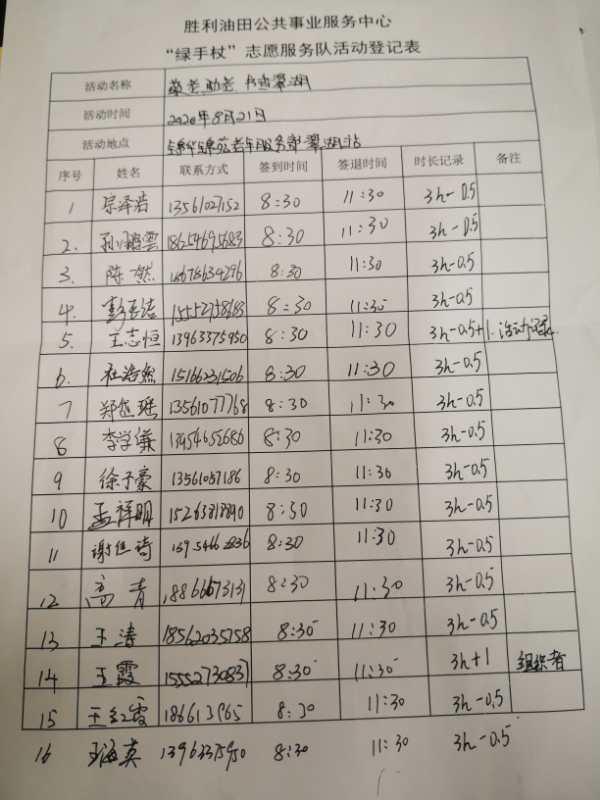 胜利油田公共事业服务中心
“绿手杖”志愿服务队活动登记表
活动名称 敬老助老 书香翠湖
活动时间 2020年8月21日
活动地点 锦华锦苑老年服务部翠湖站
序号 姓名 联系方式 签到时间 签退时间 时长记录 备注
1 宗泽浩 13561027152 8:30 11:30 3h-0.5
2. 18254695683 8:30 11:30 3h-0.5
3. 陈然 8:30 11:30 3h-0.5
4. 8:30 11:30 3h-0.5
5. 王志恒 13963375950 8:30 11:30 3h-0.5+1.活动记录
6. 杜浩然 15166231506 8:30 11:30 3h-0.5
7 13561077768 8:30 11:30 3h-0.5
8 李学谦 13954655686 8:30 11:30 3h-0.5
9 徐子豪 13561057186 8:30 11:30 3h-0.5
10 孟祥明 8:30 11:30 3h-0.5
11 谢佳琦 8:30 11:30 3h-0.5
12 高青 8:30 11:30 3h-0.5
13 王涛 18562035758 8:30 11:30 3h-0.5
14 王霞 15552730837 8:30 11:30 3h+1 组织者
15 王红霞 8:30 11:30 3h-0.5
16 王海真 13963375950 8:30 11:30 3h-0.5